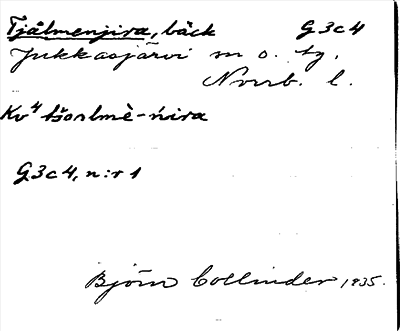 Tjålmenjira, bäck G3c4
Jukkasjärvi sn o. tg.
Norrb. l.
Kv⁴ tšoalmè-ńira
G3c4, n:r 1
Björn Collinder 1935.